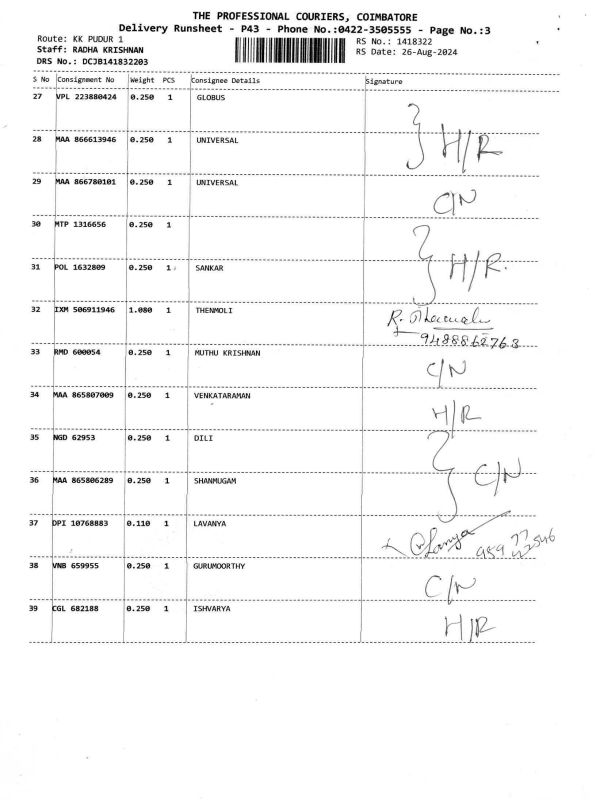 THE PROFESSIONAL COURIERS, COIMBATORE
Delivery Runsheet - P43 - Phone No.:0422-3505555 - Page No.:3
Route: KK PUDUR 1
RS No.: 1418322
Staff: RADHA KRISHNAN
RS Date: 26-Aug-2024
DRS No.: DCJB141832203
S No Consignment No Weight PCS Consignee Details Signature
27 VPL 223880424 0.250 1 GLOBUS
28 MAA 866613946 0.250 1 UNIVERSAL H/R
29 MAA 866780101 0.250 1 UNIVERSAL C/N
30 MTP 1316656 0.250 1
31 POL 1632809 0.250 1 SANKAR H/R.
32 IXM 506911946 1.080 1 THENMOLI R.
9488862768
33 RMD 600054 0.250 1 MUTHU KRISHNAN C/N
34 MAA 865807009 0.250 1 VENKATARAMAN H/R
35 NGD 62953 0.250 1 DILI
36 MAA 865806289 0.250 1 SHANMUGAM C/N
37 DPI 10768883 0.110 1 LAVANYA
38 VNB 659955 0.250 1 GURUMOORTHY C/N
39 CGL 682188 0.250 1 ISHVARYA H/R